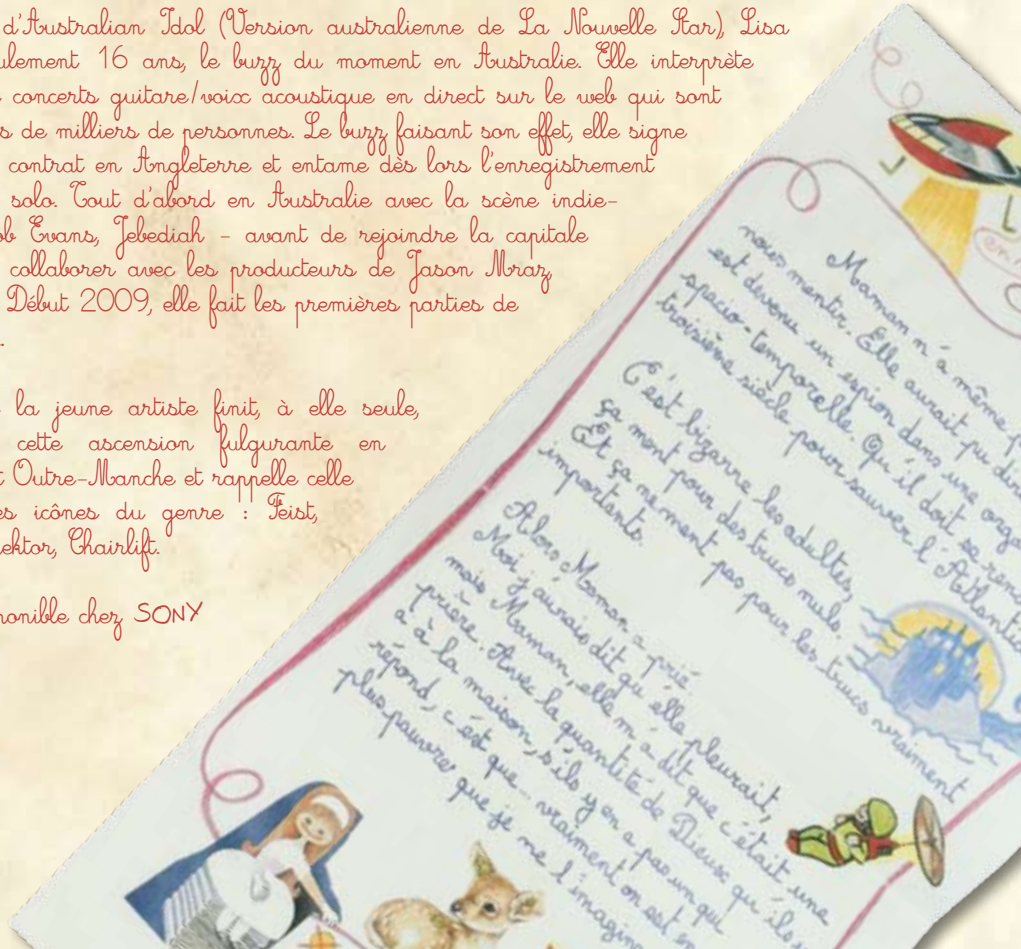 d'Australian Idol (Version australienne de La Nouvelle Star), Lisa
ulement 16 ans, le buzz du moment en Australie. Elle interprète
concerts guitare/voix acoustique en direct sur le web qui sont
s de milliers de personnes. Le buzz faisant son effet, elle signe
contrat en Angleterre et entame dès lors l'enregistrement
solo. Tout d'abord en Australie avec la scène indie-
ob Evans, Jebediah - avant de rejoindre la capitale
collaborer avec les producteurs de Jason Mraz,
Début 2009, elle fait les premières parties de
.
la jeune artiste finit, à elle seule,
cette ascension fulgurante en
t Outre-Manche et rappelle celle
es icônes du genre : Feist,
ektor, Chairlift.
ponible chez SONY
Maman n'a même p
nous mentir. Elle aurait pu dire
est devenu un espion dans une orga
spacio-temporelle. Qu'il doit se rend
troisième siècle pour sauver l'Atlanti
C'est bizarre les adultes,
ça ment pour des trucs nuls.
Et ça ne ment pas pour les trucs vraiment
importants.
Alors Maman a prié
Moi j'aurais dit qu'elle pleurait,
mais Maman, elle m'a dit que c'était une
prière. Avec la quantité de Dieux qu'ils
a à la maison, s'ils y en a pas un qui
répond, c'est que... vraiment on est en
plus pauvre que je ne l'imagin